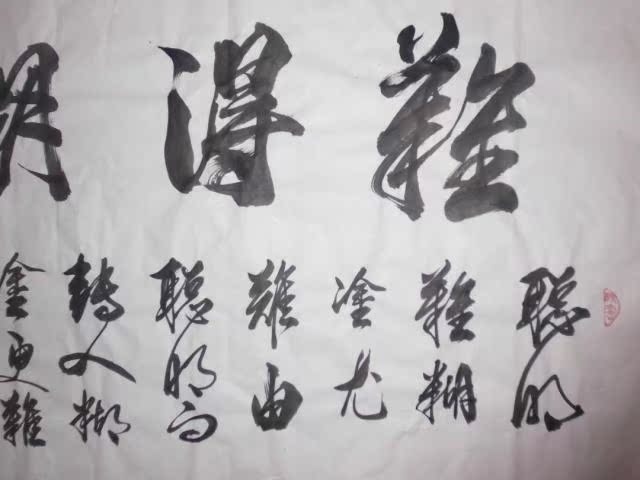 難得
聰明
難糊
塗尤
難由
聰明而
轉入糊
塗更難